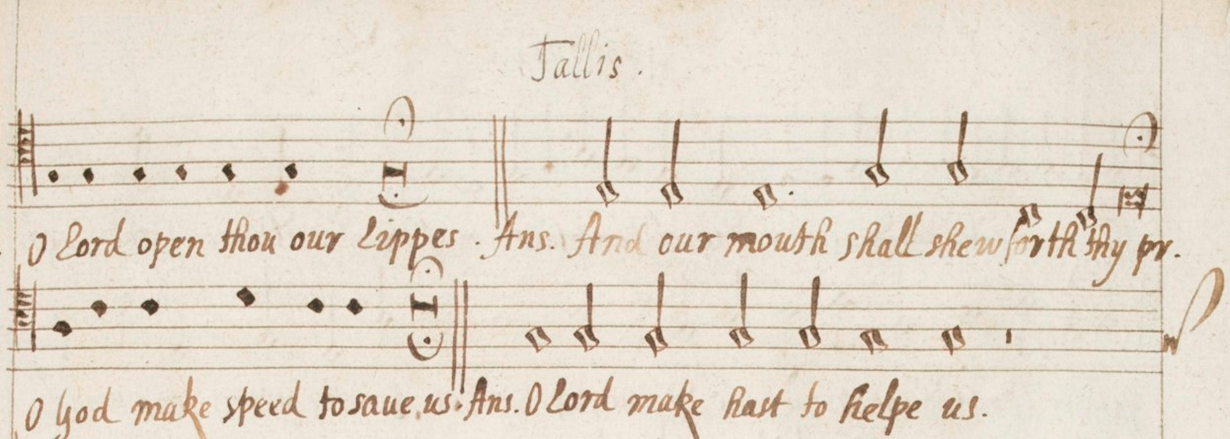 Tallis.
O Lord open thou our Lippes. Ans. And our mouth shall shew forth thy pr.
O God make speed to saue us. Ans. O Lord make hast to helpe us.